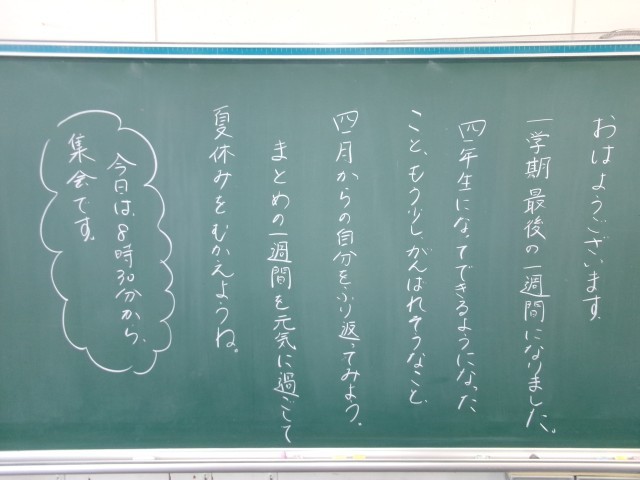 おはようございます。
一学期最後の一週間になりました。
四年生になってできるようになった
こと、もう少しがんばれそうなこと
四月からの自分をふり返ってみよう。
まとめの一週間を元気に過ごして
夏休みをむかえようね。
今日は、8時30分から、
集会です。